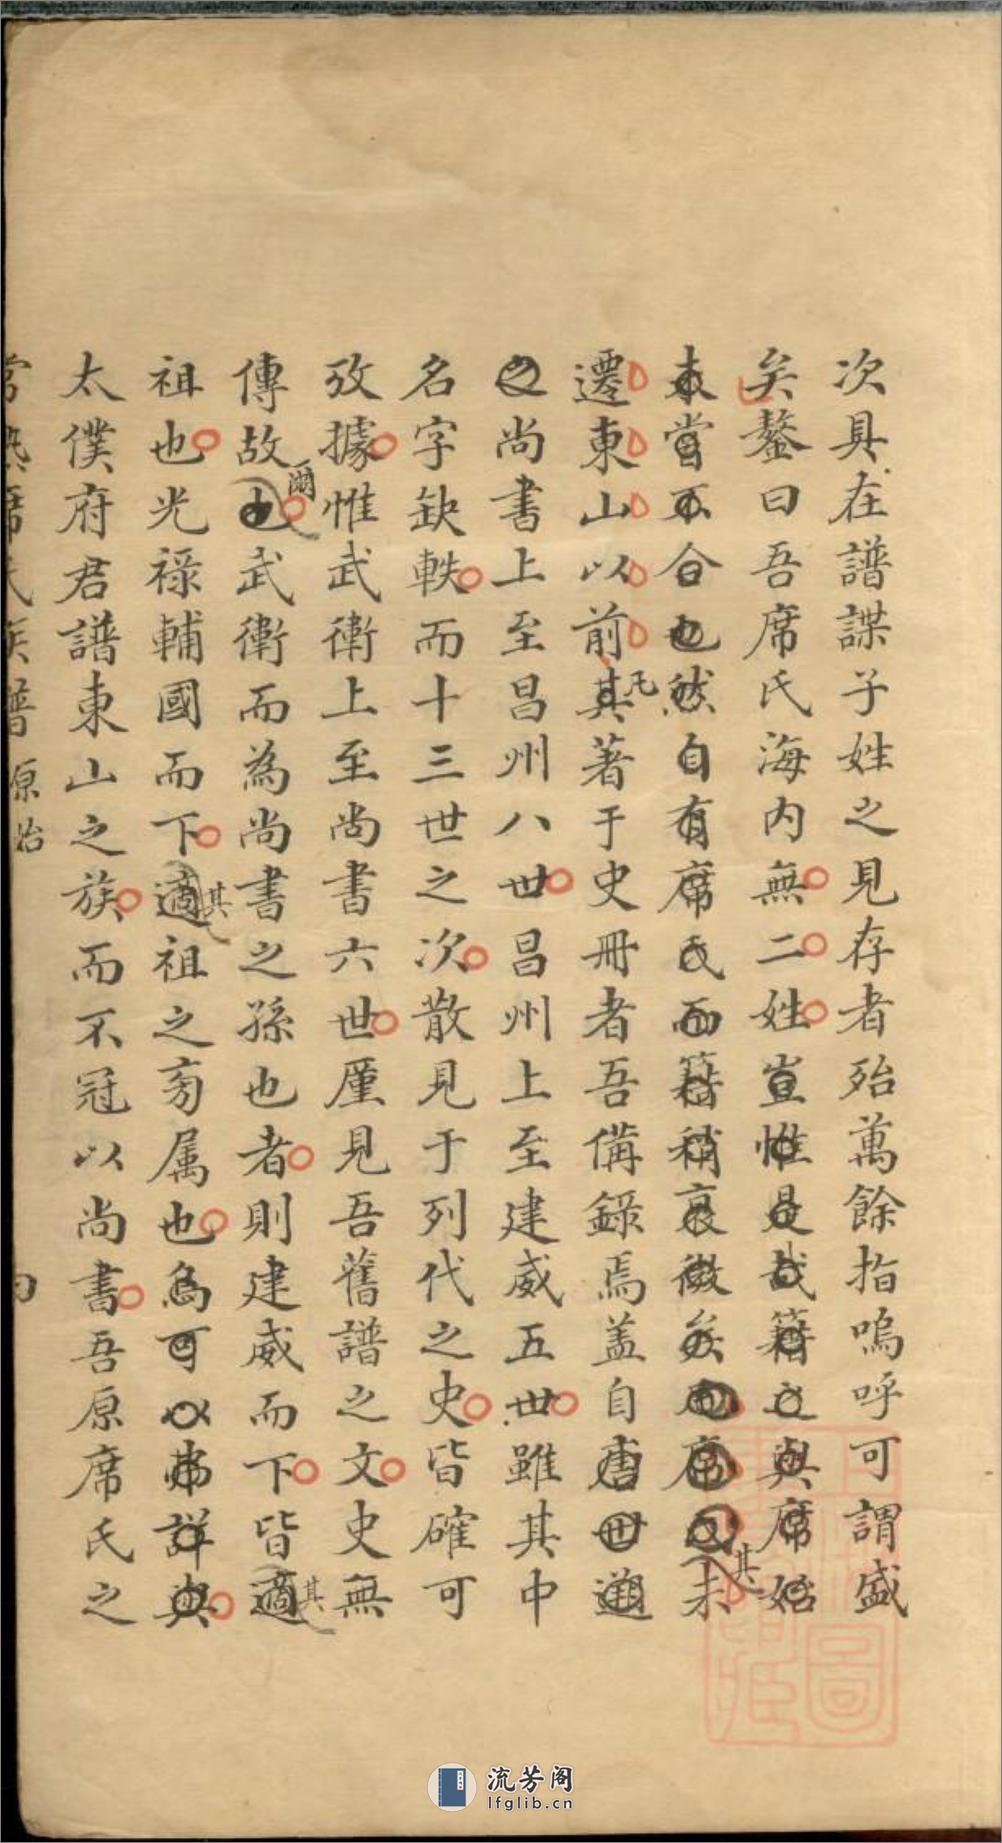 次具在譜諜子姓之見存者殆萬餘指嗚呼可謂盛
矣鏊曰吾席氏海內無二姓豈惟是哉籍之與席始
未嘗不合也然自有席氏而籍稍衰微矣 席 其未
遷東山以前其凡著于史冊者吾備錄焉盖自唐世遡
之尚書上至昌州八世昌州上至建威五世雖其中
名字缺軼而十三世之次散見于列代之史皆確可
攷據惟武衛上至尚書六世厪見吾舊譜之文史無
傳故也爾武衛而為尚書之孫也者則建威而下皆適其
祖也光祿輔國而下適其祖之旁属也烏可以弗詳與
太僕府君譜東山之族而不冠以尚書吾原席氏之
常熟席氏族譜 原始
流芳阁
lfglib.cn